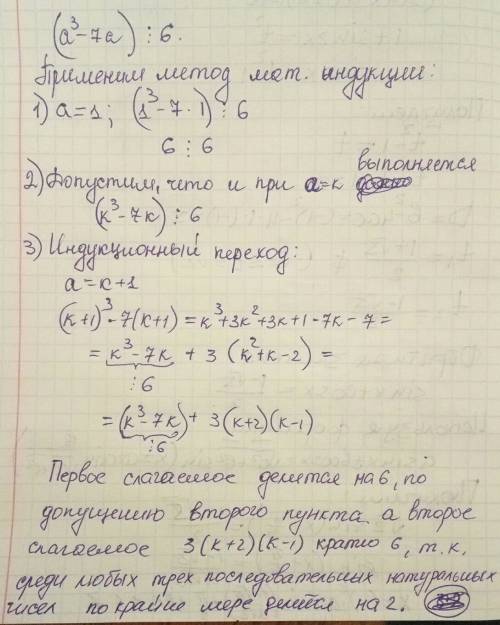 (a³-7a) ⋮ 6.
Применим метод мат. индукции:
1) a=1; (1³-7·1) ⋮ 6
6 ⋮ 6
2) Допустим, что и при a=k выполняется
(k³-7k) ⋮ 6
3) Индукционный переход:
a=k+1
(k+1)³-7(k+1)=k³+3k²+3k+1-7k-7=
= k³-7k + 3(k²+k-2) =
⋮6
= (k³-7k)+ 3(k+2)(k-1)
⋮6
Первое слагаемое делится на 6, по
допущению второго пункта а второе
слагаемое 3(k+2)(k-1) кратно 6, т.к.
среди любых трех последовательных натуральных
чисел по крайне мере делится на 2.